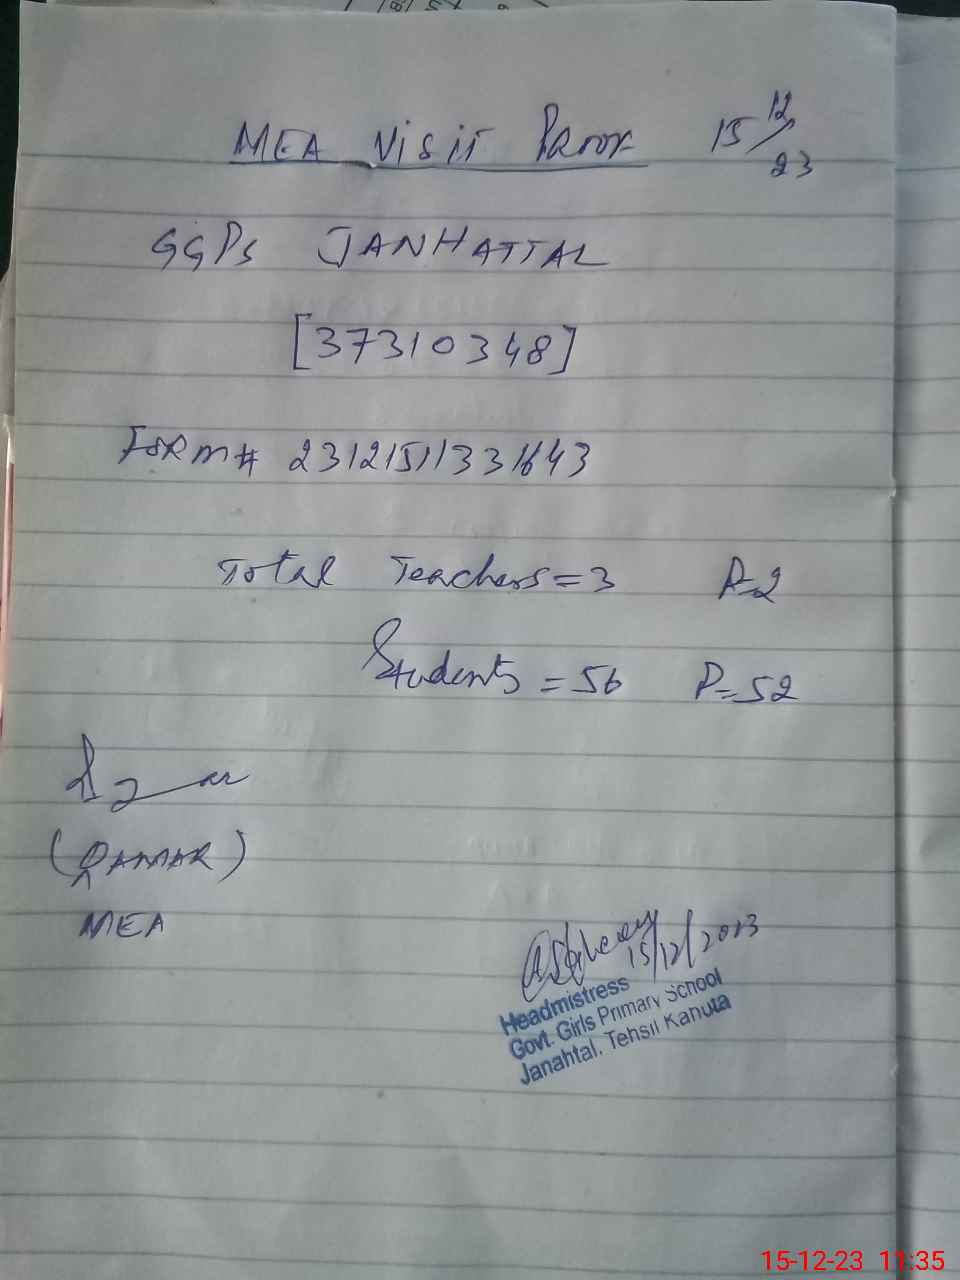 MEA Visit Proof 15/12/23
GGPS JANHATTAL
[37310348]
Form# 231215113311643
Total Teachers = 3 P=2
Students = 56 P=52
(QAMAR)
MEA
15/12/2023
Headmistress
Govt. Girls Primary School
Janahtal, Tehsil Kahuta
15-12-23 11:35